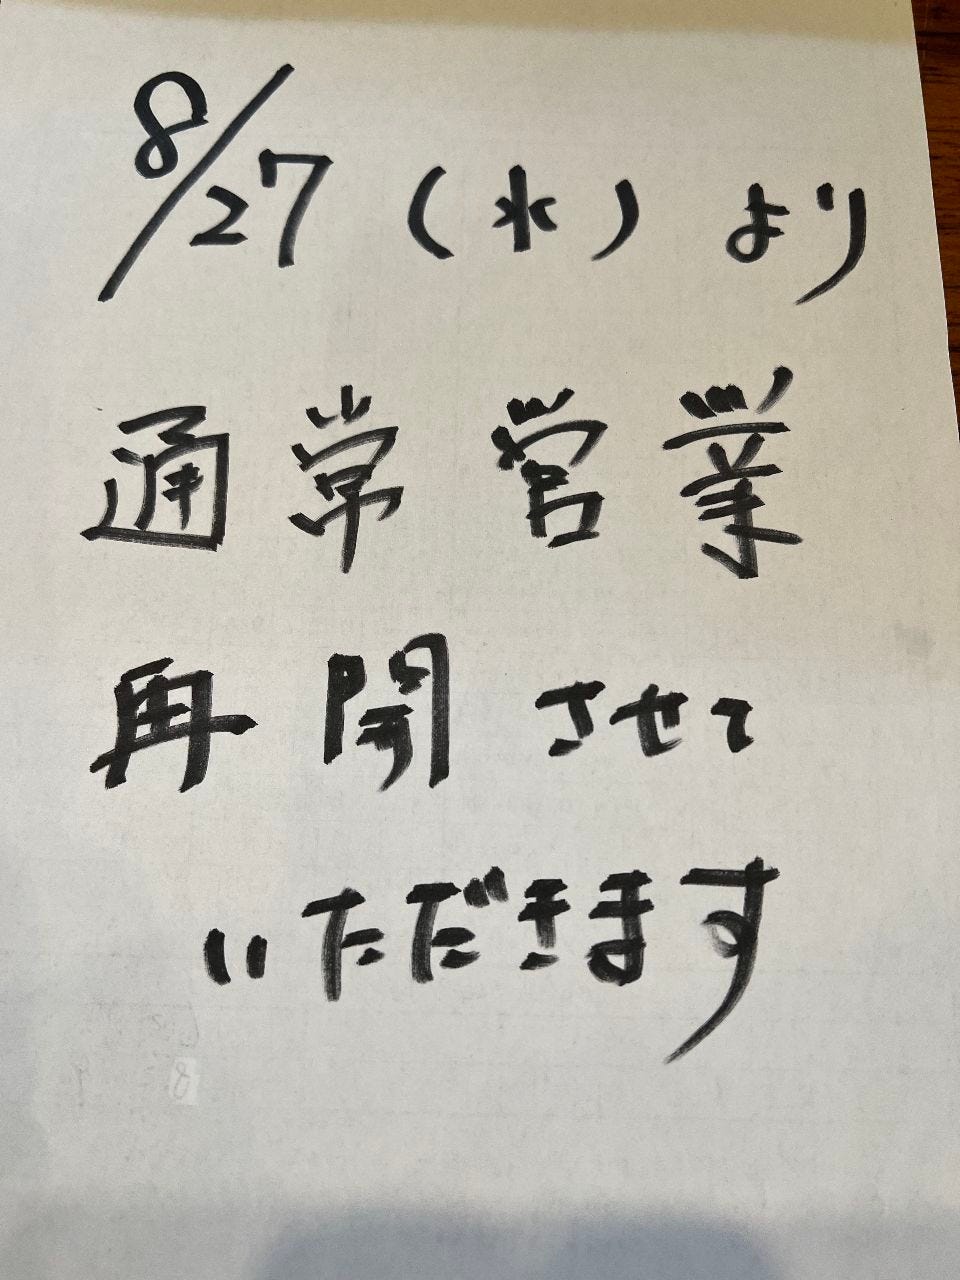 8/27(水)より
通常営業
再開させて
いただきます